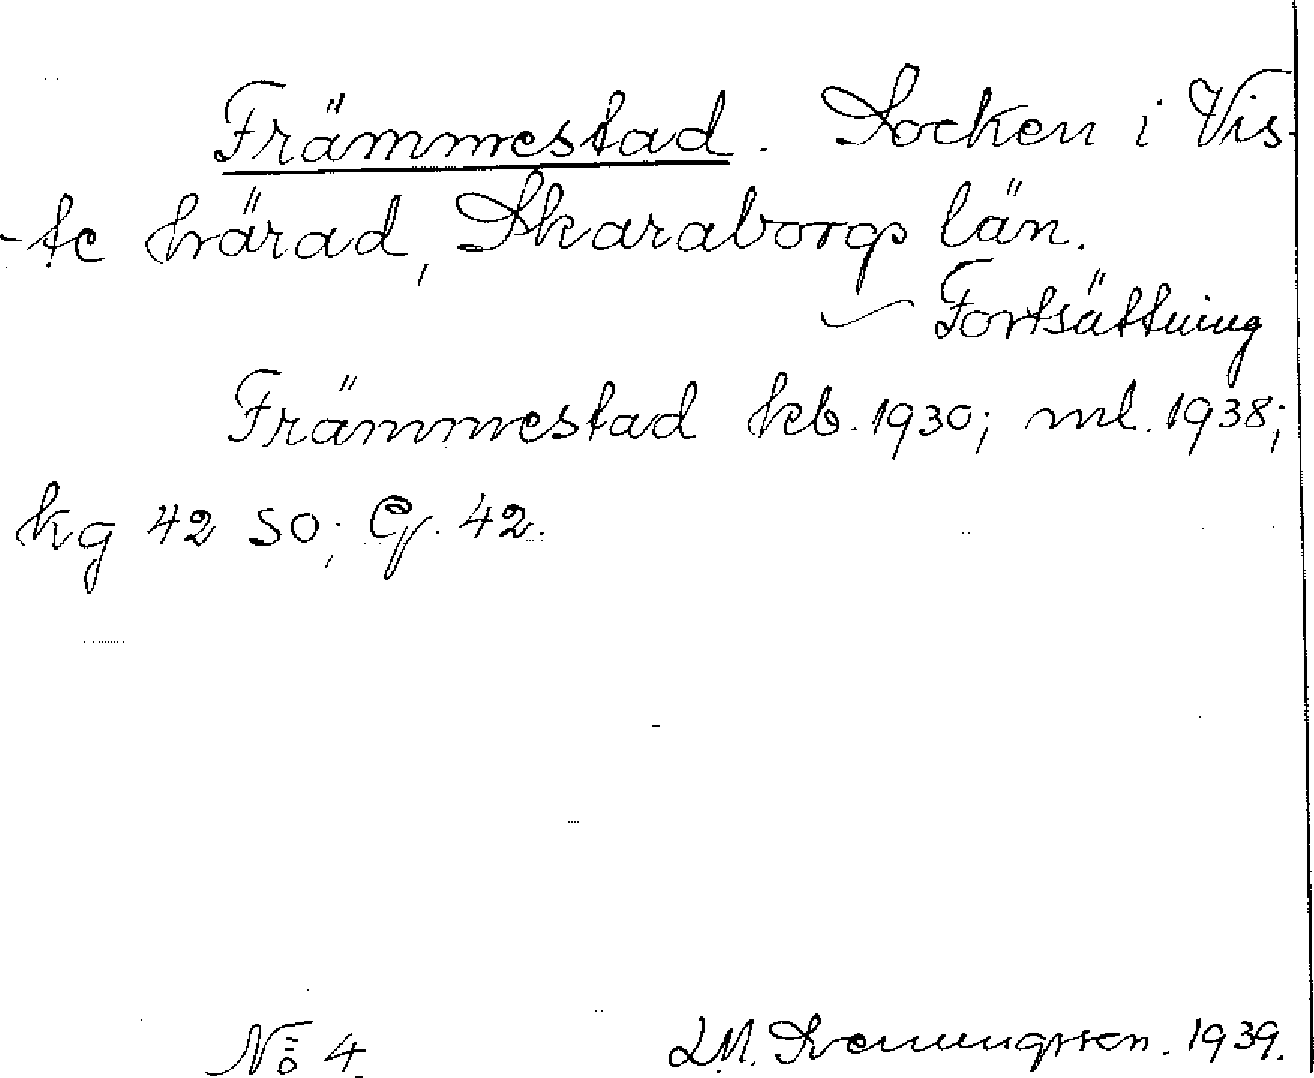 Främmestad. Socken i Vis-
-te härad, Skaraborgs län.
Fortsättning
Främmestad kb. 1930; ml. 1938;
kg 42 SO; G. 42.
No 4. L.M. Svenungsson. 1939.